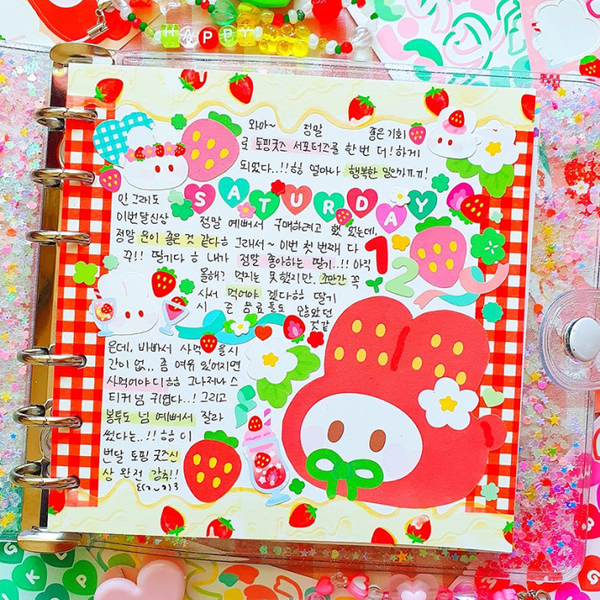 HAPPY
와아~ 정말 좋은 기회
로 토핑굿즈 서포터즈를 한 번 더! 하게
되었다..!!ㅎㅎ 얼마나 행복한 일인가ㅠㅠ!
SATURDAY
안 그래도
이번달 신상 정말 예뻐서 구매하려고 했었는데,
정말 운이 좋은 것 같다ㅎ 그래서~ 이번 첫 번째 다
꾸!! 딸기다ㅎ 내가 정말 좋아하는 딸기..!! 아직
12
올해? 먹지는 못했지만, 조만간 꼭
사서 먹어야 겠다ㅎㅎ 딸기
시즌 음료들도 많았던
것 같
은데, 바빠서 사먹을 시
간이 없.. 좀 여유 있어지면
사먹어야디ㅎㅎ 그나저나 스
티커 넘 귀엽다..! 그리고
봉투도 넘 예뻐서 잘라
썼다는..!! ㅎㅎ 이
번달 토핑굿즈 신
상 완전 강추!!